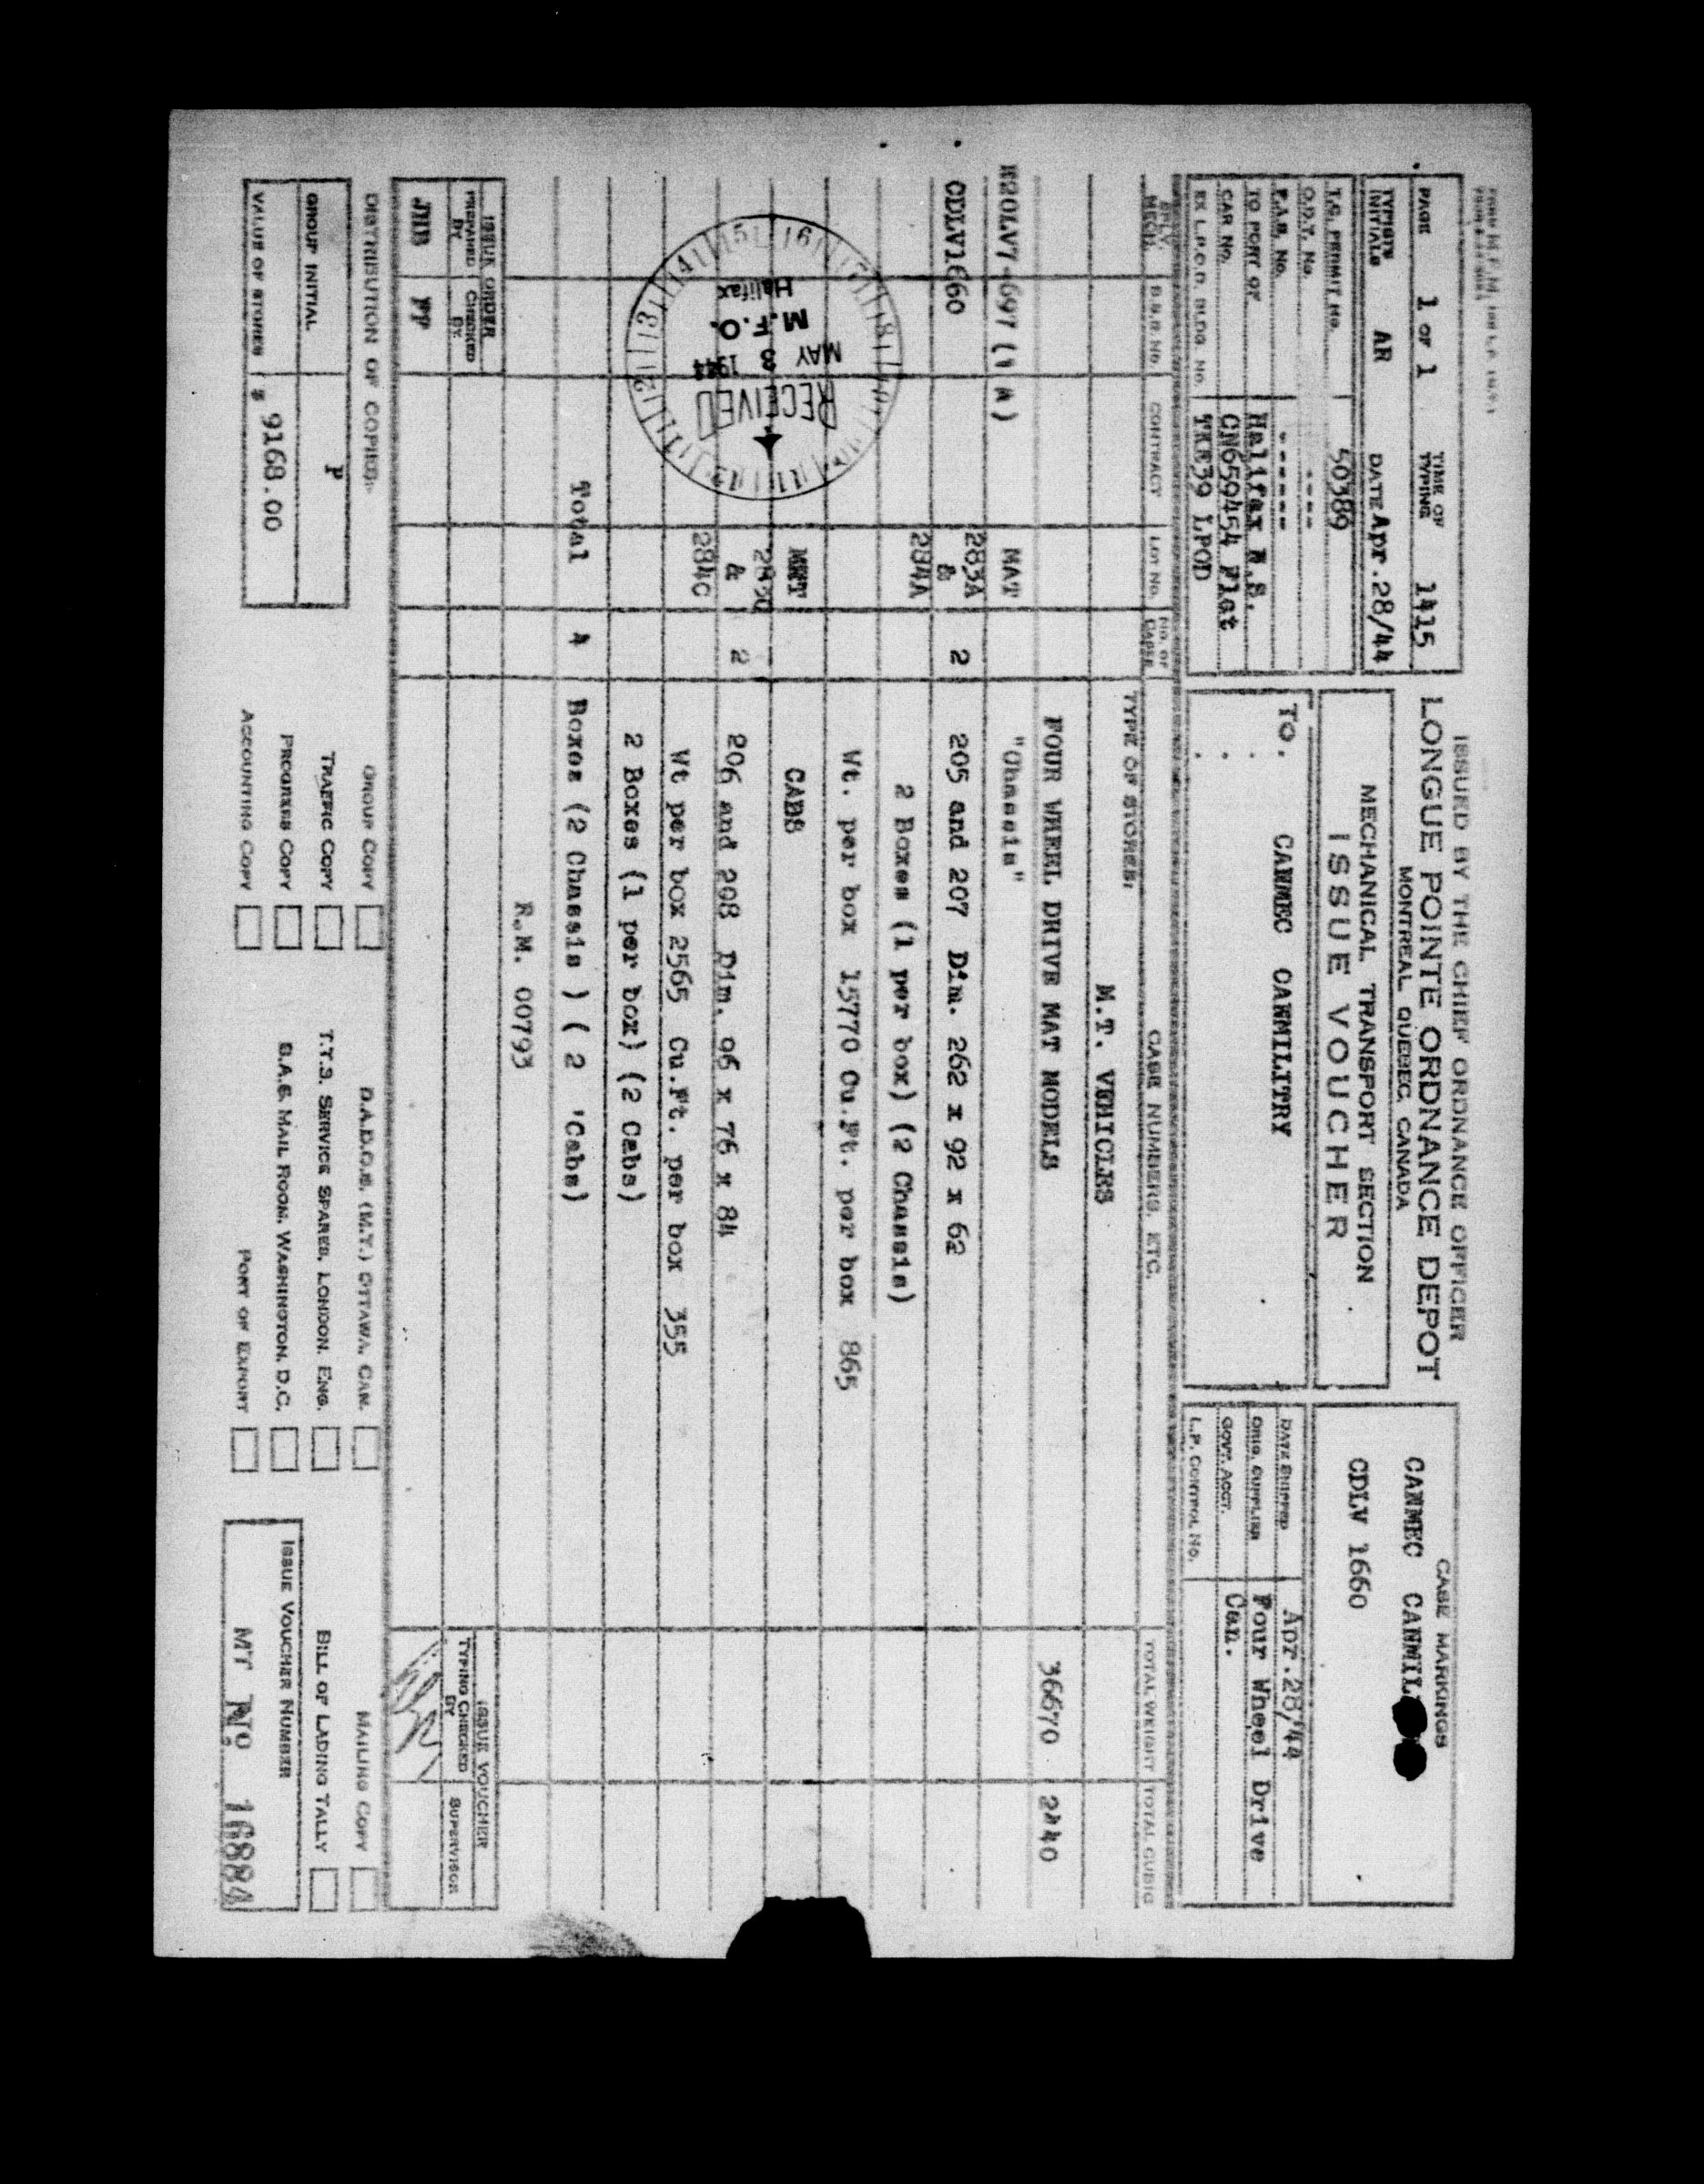 PAGE 1 OF 1 TIME OF TYPING 1415
TYPISTS INITIALS AR DATE Apr.28/44
T.C. PERMIT NO. 50389
O.D.T. No. ----
P.A.B. No. ------
TO PORT OF Halifax N.S.
CAR NO. CN659454 Flat
EX L.P.O.D. BLDG. NO. TRE39 LPOD
ISSUED BY THE CHIEF ORDNANCE OFFICER
LONGUE POINTE ORDNANCE DEPOT
MONTREAL, QUEBEC, CANADA
MECHANICAL TRANSPORT SECTION
ISSUE VOUCHER
TO. CANMEC CANMILITRY
CASE MARKINGS
CANMEC CANMIL
CDLV 1660
DATE SHIPPED Apr.28/44
ORIG. SUPPLIER Four Wheel Drive
GOVT. ACCT. Can.
L.P. CONTROL No.
MECH. S.S.R. NO. CONTRACT LOT NO. NO. OF CASES TYPE OF STORES: CASE NUMBERS, ETC. TOTAL WEIGHT TOTAL CUBIC
M.T. VEHICLES
FOUR WHEEL DRIVE MAT MODELS 36670 2440
MAT "Chassis"
CDLV1660 283A & 284A 2 205 and 207 Dim. 262 x 92 x 62
2 Boxes (1 per box) (2 Chassis)
Wt. per box 15770 Cu.Ft. per box 865
CABS
& 284C 2 206 and 208 Dim. 96 x 76 x 84
Wt per box 2565 Cu.Ft. per box 355
2 Boxes (1 per box) (2 Cabs)
Total 4 Boxes (2 Chassis ) ( 2 'Cabs)
R.M. 00793
RECEIVED
MAY 3 1944
M.F.O.
Halifax
ISSUE ORDER
PREPARED BY CHECKED BY
JHB
ISSUE VOUCHER
TYPING CHECKED BY SUPERVISOR
DISTRIBUTION OF COPIES:
GROUP INITIAL P
VALUE OF STORES $ 9168.00
GROUP COPY
TRAFFIC COPY
PROGRESS COPY
ACCOUNTING COPY
D.A.D.O.S. (M.T.) OTTAWA, CAN.
T.T.S. SERVICE SPARES, LONDON, ENG.
S.A.S. MAIL ROOM, WASHINGTON, D.C.
PORT OF EXPORT
MAILING COPY
BILL OF LADING TALLY
ISSUE VOUCHER NUMBER
MT No 16884